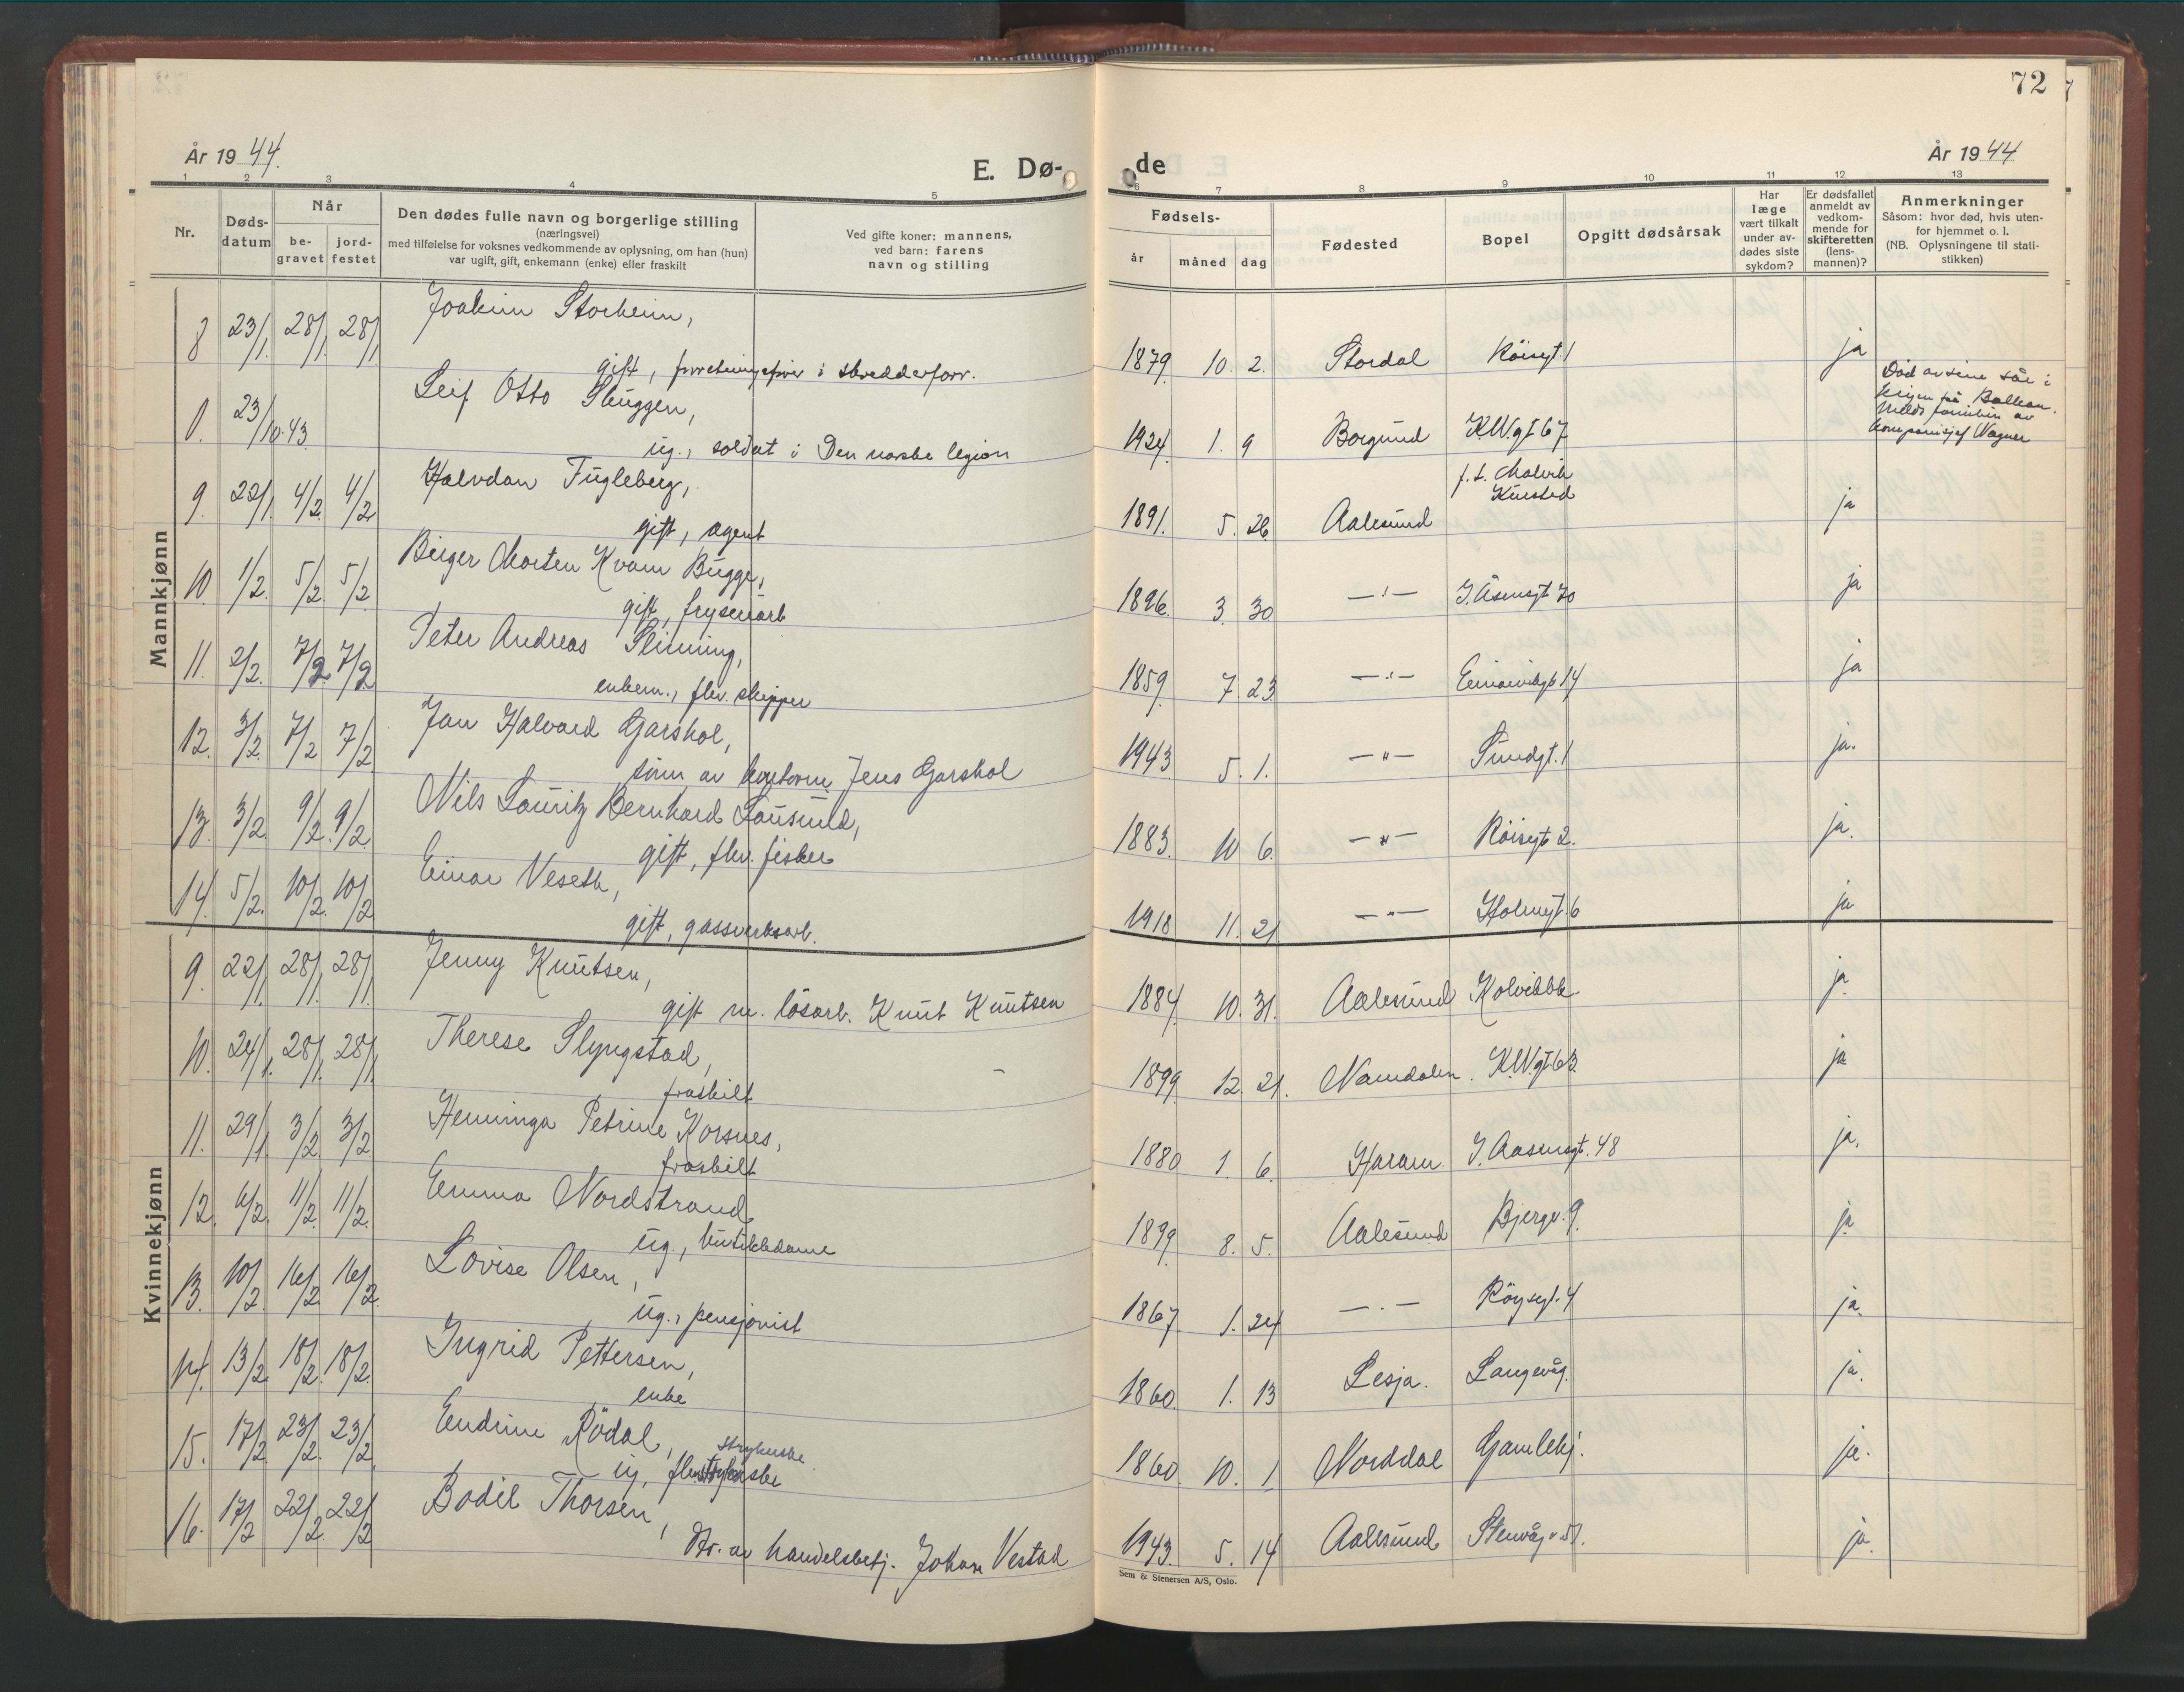 72
År 1944.
E. Dø-
de
År 1944
1 2 3 4 5
6 7 8 9 10 11 12 13
Nr.
Døds-
datum
Når
be-
gravet
jord-
festet
Den dødes fulle navn og borgerlige stilling
(næringsvei)
med tilføielse for voksnes vedkommende av oplysning, om han (hun)
var ugift, gift, enkemann (enke) eller fraskilt
Ved gifte koner: mannens,
ved barn: farens
navn og stilling
Fødsels-
år måned dag
Fødested
Bopel
Opgitt dødsårsak
Har
læge
vært tilkalt
under av-
dødes siste
sykdom?
Er dødsfallet
anmeldt av
vedkom-
mende for
skifteretten
(lens-
mannen)?
Anmerkninger
Såsom: hvor død, hvis uten-
for hjemmet o. l.
(NB. Oplysningene til stati-
stikken)
Mannkjønn
8 23/1. 28/1. 28/1 Joakim Storheim,
gift, forretningsfører i skredderforr.
1879. 10. 2. Stordal Röisgt. 1 ja
23/10.43 Leif Otto Skuggen,
ug., soldat i Den norske legion
1924. 1. 9 Borgund K.W.gt 67
Död av sine sår i
krigen på Balkan.
kompanisjef Wagner
9. 22/1. 4/2. 4/2 Halvdan Fugleberg,
gift, agent
1891. 5. 26. Aalesund f. t. Malvik
ja
10. 1/2. 5/2. 5/2. Birger Morten Kvam Bugge,
gift, fryseriarb
1896. 3. 30 —"— I. Åsensgt 70 ja
11. 2/2. 7/2. 7/2 Peter Andreas Slinning,
enkem., fhv. skipper
1859. 7. 23 —"— 14 ja
12. 3/2. 7/2 7/2. Jan Halvard Garshol,
sönn av Jens Garshol
1943. 5. 1. —"— Sundgt. 1 ja.
13. 3/2. 9/2. 9/2. Nils Lauritz Bernhard Lausund,
gift, fhv. fisker
1883. 10. 6. —"— Röisgt 2. ja.
14. 5/2. 10/2. 10/2 Einar Veseth,
gift, gassverksarb.
1918 11. 21 —"— Holmgt. 6 ja
Kvinnekjønn
9. 22/1. 28/1. 28/1. Jenny Knutsen,
gift m. lösarb. Knut Knutsen
1884. 10. 31. Aalesund Kolvikbk ja.
10. 24/1. 28/1. 28/1. Therese Slyngstad,
fraskilt
1899. 12. 21. Namdalen. K.W.gt 63 ja
11. 29/1 3/2. 3/2. Hemminga Petrine Korsnes,
fraskilt
1880 1. 6. Haram. I. Aasensgt. 48 ja.
12. 6/2. 11/2. 11/2. Emma Nordstrand
ug., butikkdame
1899 8. 5. Aalesund Bjergv. 9. ja
13. 10/2. 16/2. 16/2. Lovise Olsen,
ug., pensjonist
1867. 1. 24 —"— Röysgt. 4 ja.
14. 13/2. 18/2. 18/2. Ingrid Pettersen,
enke
1860. 1. 13 Lesja. Langevåg. ja.
15. 17/2. 23/2. 23/2. Endrine Rödal,
strykerske
ug., fhv.
1860. 10. 1 Norddal Gamlehj. ja.
16. 17/2 22/2. 22/2 Bodil Thorsen,
dtr. av handelsbetj. Johan Vestad
1943. 5. 14 Aalesund Stenvåg v. 51. ja.
Sem & Stenersen A/S, Oslo.